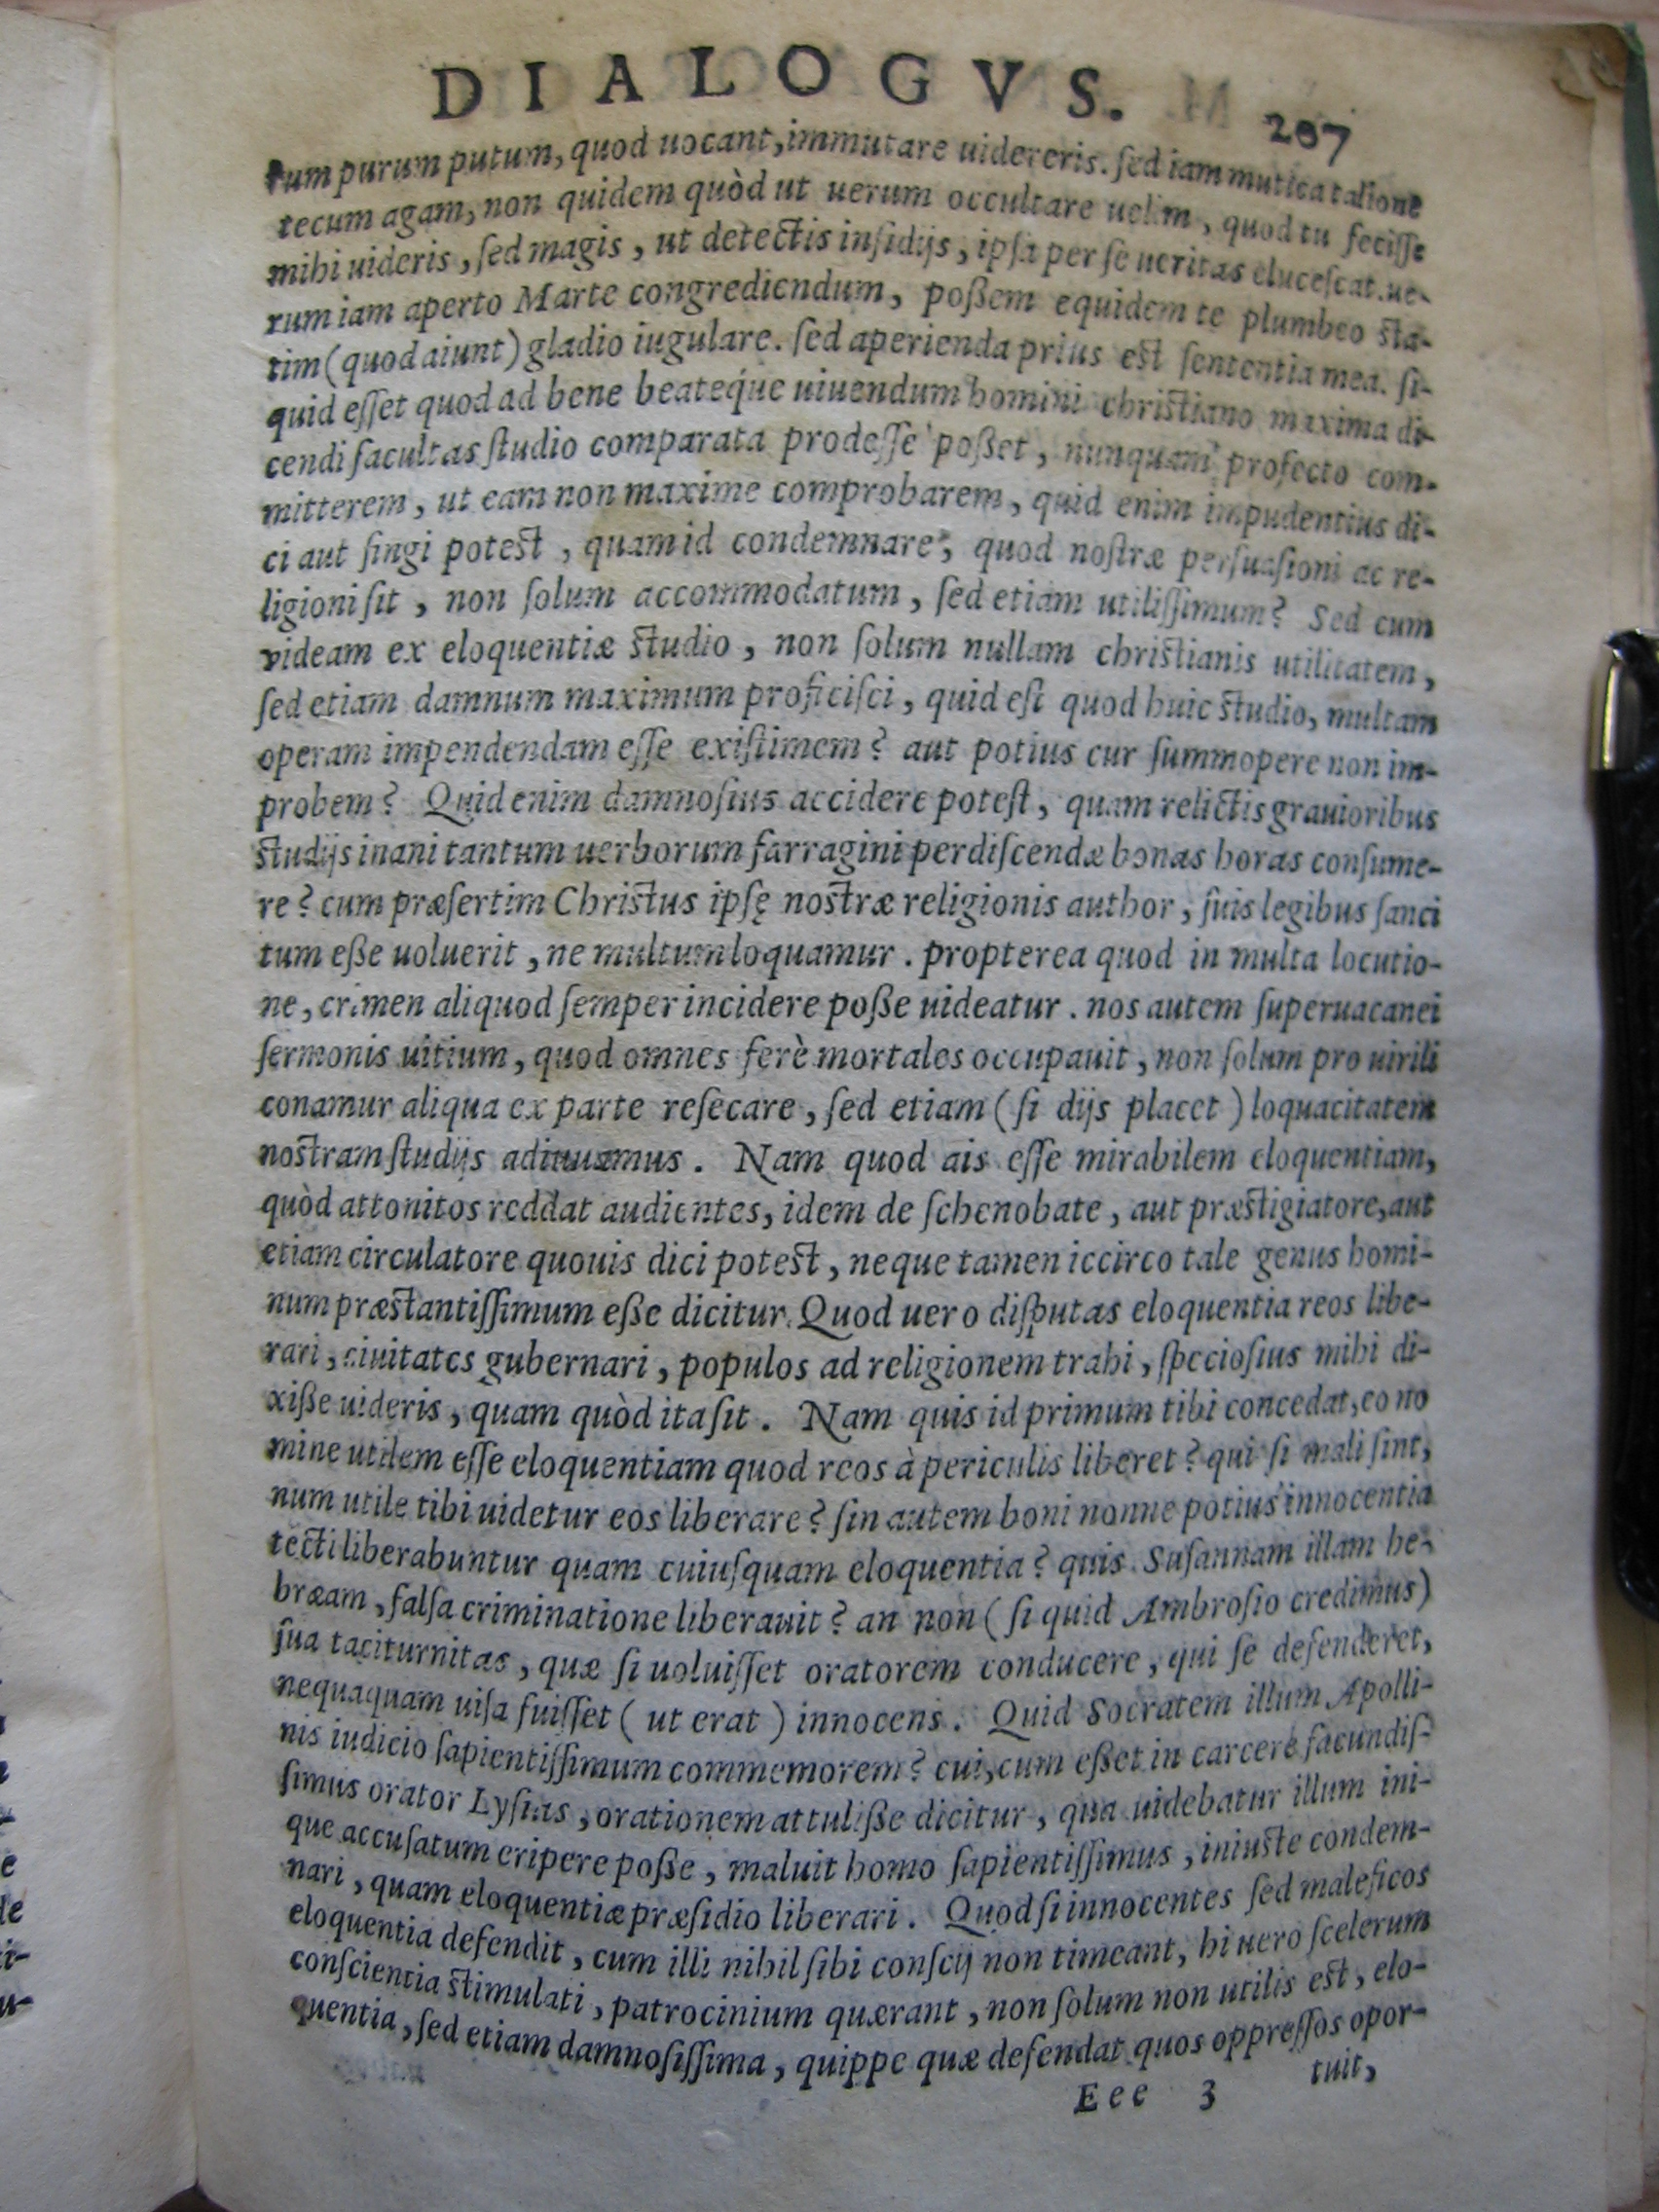 DIALOGVS. 207
tum purum putum, quod uocant, immutare uidereris. ſed iam mutica talione
tecum agam, non quidem quòd ut uerum occultare uelim, quod tu feciſſe
mihi uideris, ſed magis, ut detectis inſidijs, ipſa per ſe ueritas eluceſcat. ue-
rum iam aperto Marte congrediendum, poßem equidem te plumbeo sta-
tim (quod aiunt) gladio iugulare. ſed aperienda prius est ſententia mea. ſi-
quid eſſet quod ad bene beateq́ue uiuendum homini christiano maxima di-
cendi facultas ſtudio comparata prodeſſe poßet, nunquam profecto com-
mitterem, ut eam non maxime comprobarem, quid enim impudentius di-
ci aut fingi potest, quam id condemnare, quod noſtræ perſuaſioni ac re-
ligioni ſit, non ſolum accommodatum, ſed etiam utiliſſimum? Sed cum
videam ex eloquentiæ studio, non ſolum nullam christianis utilitatem,
ſed etiam damnum maximum proficiſci, quid eſt quod huic studio, multam
operam impendendam eſſe exiſtimem? aut potius cur ſummopere non im-
probem? Quid enim damnoſius accidere poteſt, quam relictis grauioribus
studijs inani tantum uerborum farragini perdiſcendæ bonas horas conſume-
re? cum præſertim Christus ipſę nostræ religionis author, ſuis legibus ſanci
tum eße uoluerit, ne multum loquamur. propterea quod in multa locutio-
ne, crimen aliquod ſemper incidere poße uideatur. nos autem ſuperuacanei
ſermonis uitium, quod omnes ferè mortales occupauit, non ſolum pro uirili
conamur aliqua ex parte reſecare, ſed etiam (ſi dijs placet) loquacitatem
nostram ſtudijs adiuuamus. Nam quod ais eſſe mirabilem eloquentiam,
quòd attonitos reddat audientes, idem de ſchenobate, aut præstigiatore, aut
etiam circulatore quouis dici potest, neque tamen iccirco tale genus homi-
num præstantiſſimum eße dicitur. Quod uero diſputas eloquentia reos libe-
rari, ciuitates gubernari, populos ad religionem trahi, ſpecioſius mihi di-
xiße uideris, quam quòd ita ſit. Nam quis id primum tibi concedat, eo no
mine utilem eſſe eloquentiam quod reos à periculis liberet? qui ſi mali ſint,
num utile tibi uidetur eos liberare? ſin autem boni nonne potius innocentia
tecti liberabuntur quam cuiuſquam eloquentia? quis Suſannam illam he-
bræam, falſa criminatione liberauit? an non (ſi quid Ambroſio credimus)
ſua taciturnitas, quæ ſi uoluiſſet oratorem conducere, qui ſe defenderet,
nequaquam uiſa fuiſſet (ut erat) innocens. Quid Socratem illum Apolli-
nis iudicio ſapientiſſimum commemorem? cui, cum eßet in carcere facundiſ-
ſimus orator Lyſias, orationem attuliße dicitur, qua uidebatur illum ini-
que accuſatum eripere poße, maluit homo ſapientiſſimus, iniuste condem-
nari, quam eloquentiæ præſidio liberari. Quod ſi innocentes ſed maleficos
eloquentia defendit, cum illi nihil ſibi conſcij non timeant, hi uero ſcelerum
conſcientia stimulati, patrocinium quærant, non ſolum non utilis est, elo-
quentia, ſed etiam damnoſiſſima, quippe quæ defendat quos oppreſſos opor-
Eee 3 tuit,